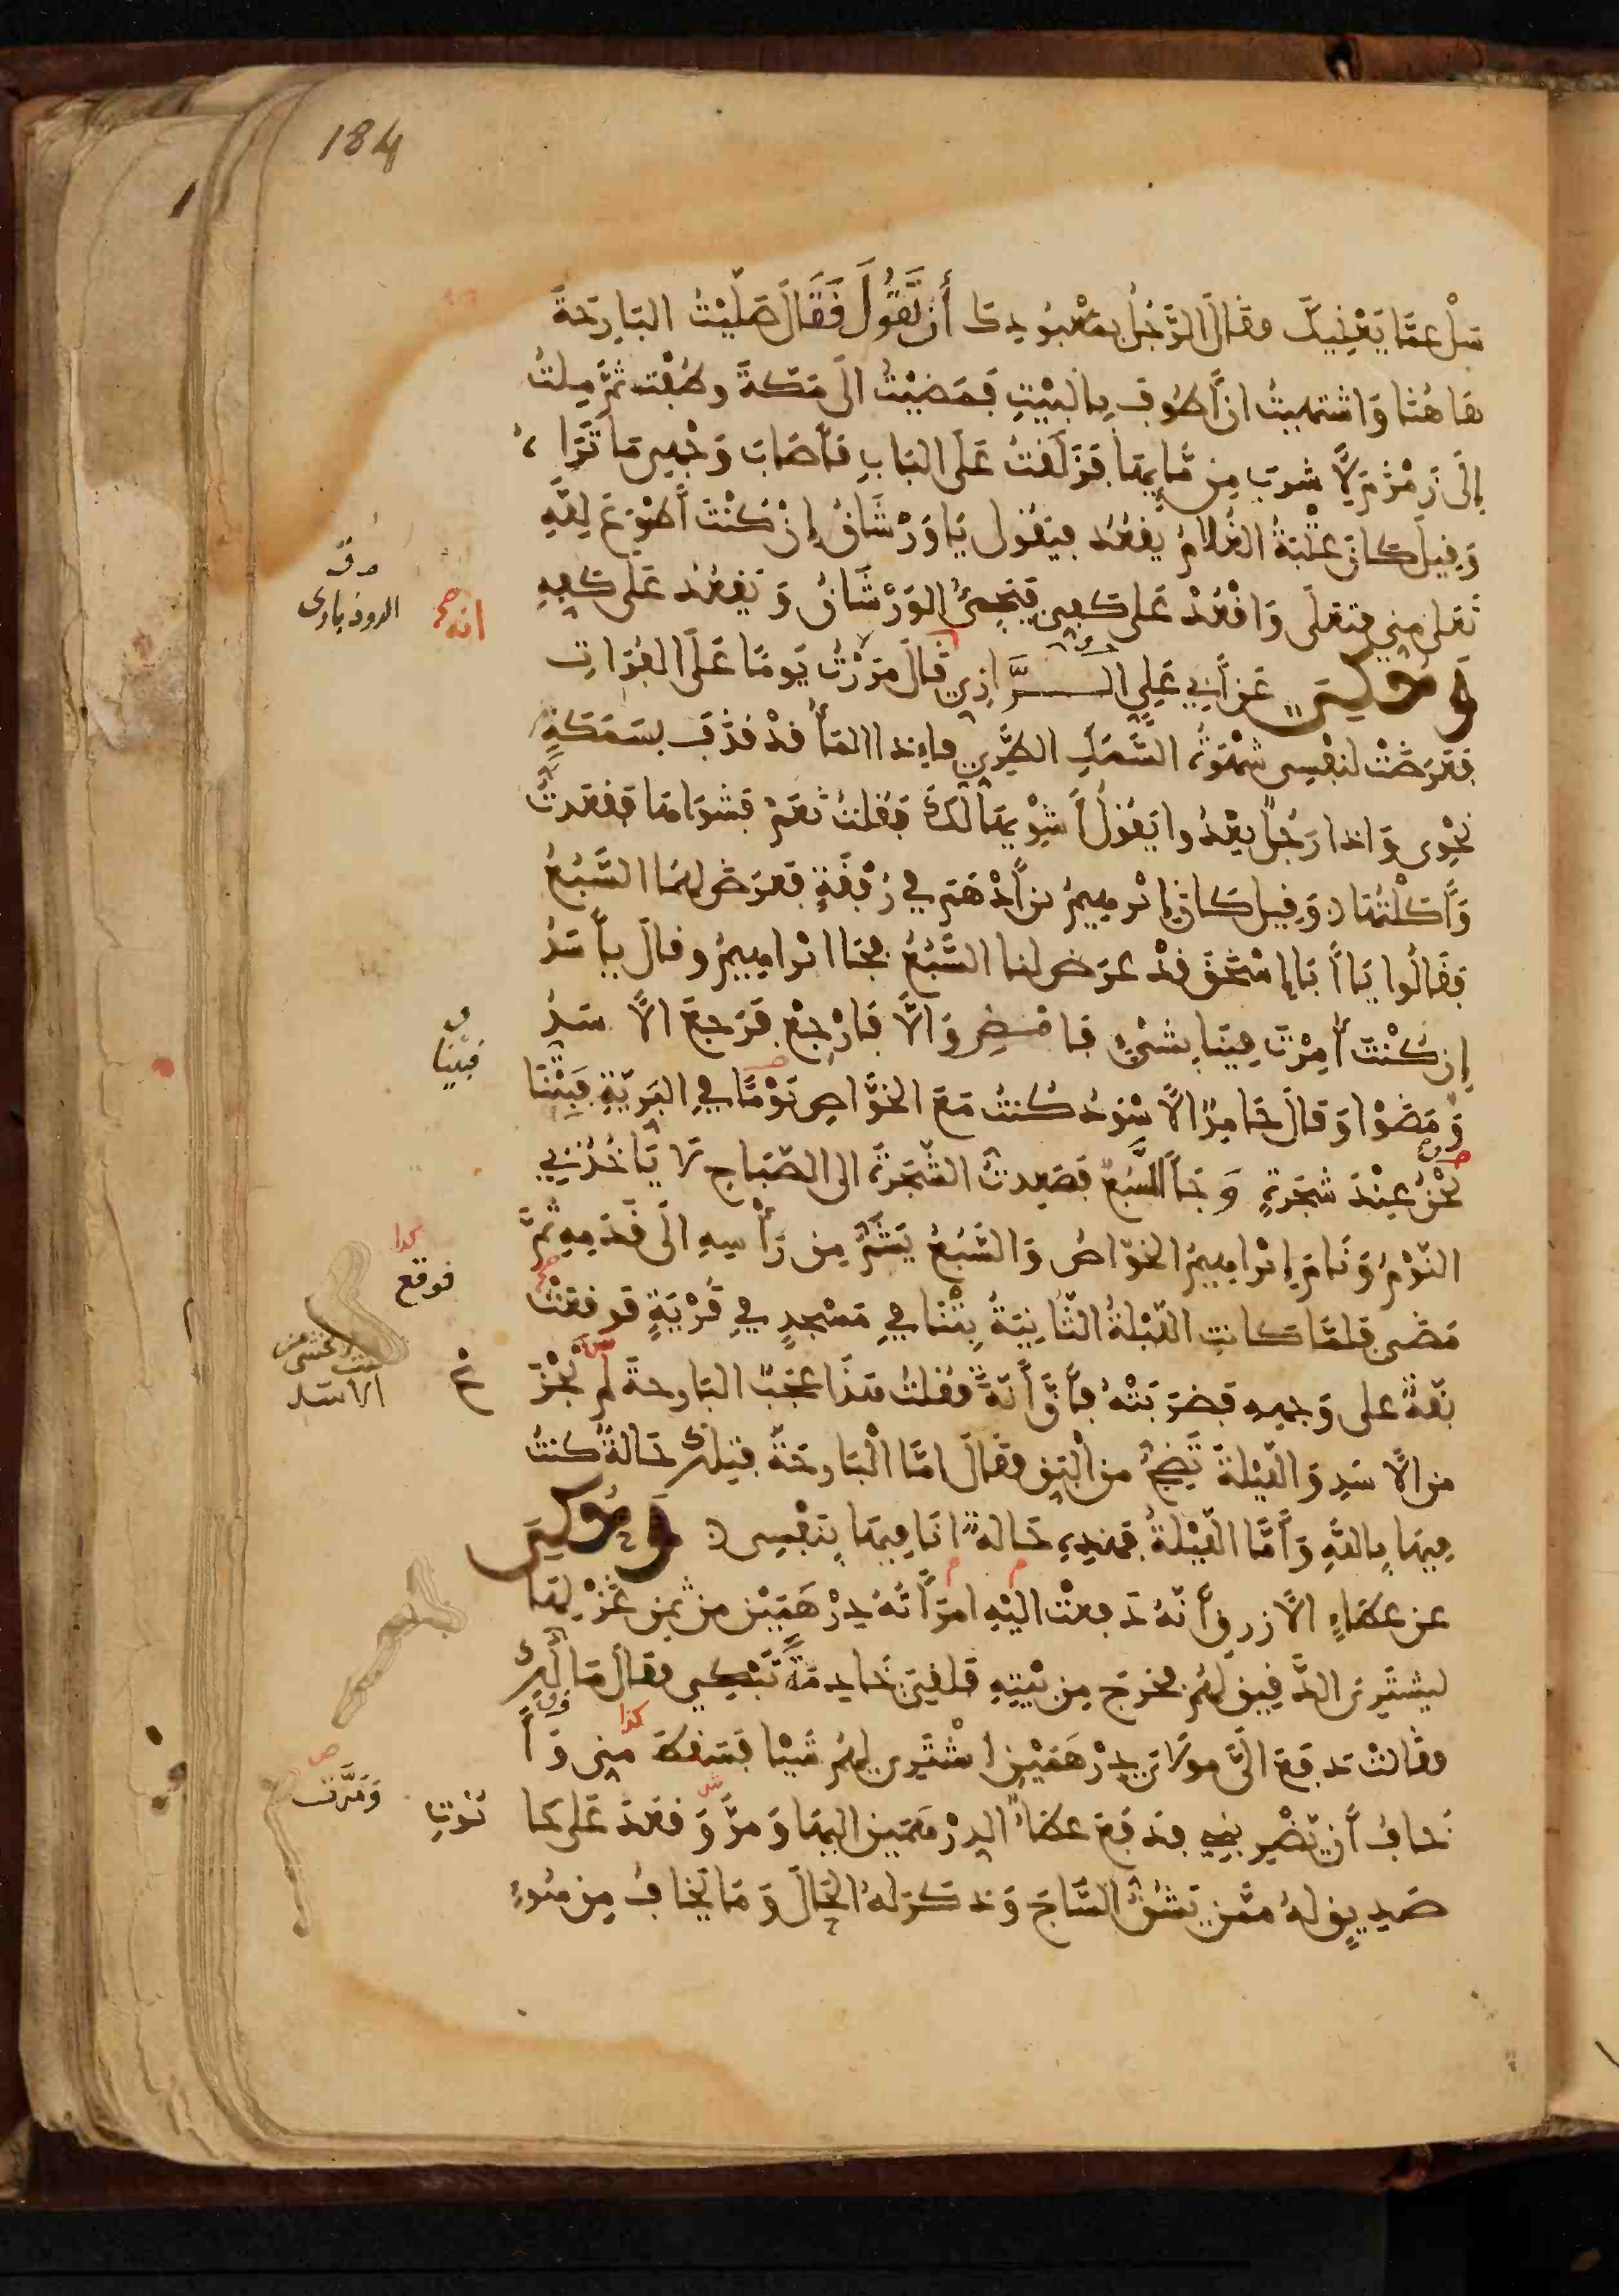 184
سَلْ عمَّا يَعْنِيكَ فقَالَ الرَّجُلُ بمَعْبُودِكَ أن تَقُولَ فَقَالَ صَلَّيْتُ البَارِحَةَ
هَاهُنَا وَاشتهيتُ ان أطُوفَ بِالبَيْتِ فَمَضَيْتُ الَى مَكَّةَ وطُفْت ثمَّ مِلتُ
إلَى زَمْزَمَ لِأَشرَبَ مِن مَّايِهَا فَزَلَقْتُ عَلَى البَابِ فأَصَابَ وَجْهِي مَا تَرَاهُ
وَقِيلَ كانَ عُتْبَةُ الغُلَامُ يقعُد فيَقُول يَا وَرْشَانُ إنْ كُنْتَ أطْوَعَ لِلَّهِ
تَعَلى مِني فتعَلَى وَاقْعُدْ عَلى كَفِي فَيَجِيُ الوَرْشَانُ وَيَقعُدُ عَلى كَفِهِ
وَحُكِيَ عَن أَبِي عَلِي الـــرَّازِي قَالَ مَرَرْتُ يَومًا عَلَى الفُرَاتِ
فَعَرَضَتْ لنَفْسِى شَهْوَةُ السَّمَكِ الطَّرِي فإذا المَا قدْ قذَفَ بسَمَكَةٍ
نَحْوِى وَاذا رَجُلٌ يعْدُوا يَقُولُ أَشوِيهَا لَكَ فَقُلتُ نَعَمْ فَشَوَاهَا فقعَدتُّ
وَأَكَلْتُهَا وَقِيل كانَ إبْرهِيمُ بن أدْهَم فِي رُفْقَةٍ فعَرَضَ لهُمَا السَّبُعُ
فقَالُوا يَا أَبَا إسْحَق قدْ عرَض لنا السَّبُعُ فجَا ابْراهِيمُ وقالَ يأَسَدُ
إن كُنْتَ أُمِرْتَ فِينَا بِشَىْءٍ فَامْضِ وَالَّا فَارْجِعْ فَرَجعَ الأَسَدُ
وَمَضَوْا وَقَالَ حَامِدٌ الأَسْوَدُ كُنتُ مَعَ الخَوَّاصِ يَوْمًا فِي البَرِيَّةِ فَبِتْنَا
نحْنُ عِنْدَ شَجَرَةٍ وَجَا السَّبُعُ فصَعِدتُ الشَّجَرَةَ الى الصَّبَاحِ لَا يَاخُذُنِي
النَّوْمُ وَنَامَ إبْراهِيمُ الخَوَّاصُ وَالسَّبُعُ يَشُمُّ مِن رَأْسِهِ الَى قَدَمِهِ ثُمَّ
مَضَى فلمَّا كَانتِ اللَّيْلَةُ الثَّانِيَةُ بِتْنَا فِي مَسْجِدٍ فِي قَرْيَةٍ فَوقعَتْ
بَقةٌ على وَجهِهِ فَضَرَبَتْهُ فأَنَّ أَنَّةً فقلتُ هَذَا عَجَبٌ البَارحةَ لَم تَجْزَعْ
من الأَسَدِ وَاللَّيْلةَ تَضِجُّ من البَقِ فقَالَ امَّا الْبَارحَةُ فتِلكَ حَالةٌ كُنتُ
فِيهَا بِاللهِ وَأَمَّا اللَّيْلَةُ فَهَذِهِ حَالةٌ انَا فِيهَا بِنَفْسِى وَحُكِيَ
عن عَطَاءٍ الأَزرقِ أَنَّهُ دَفعَتْ اليْهِ امرَأَتُهُ دِرْهَمَيْنِ من ثمنِ غَزْلِهَا
ليشتَرِيَ الدَّقِيقَ لَهُم فخرَجَ مِن بَيْتِهِ فلقِيَ خَادِمَةً تَبْكِي فقَالَ مَا لَكِ
فقَالتْ دَفعَ الَيَّ مَولَايَ دِرْهَمَيْنِ اشْتَرِي لهُمْ شَيْا فسَقطَا مِنِى وَأَ
خَافُ أن يَّضْرِبَنِي فدَفعَ عَطَاءٌ الدِرْهَمَينِ اليهَا وَمَرَّ وَقعَدَ عَلى حَا
نُوتِ
صَدِيقٍ لهُ ممَّن يَشُقُّ السَّاجَ وَذكَرَ لهُ الحَالَ وَمَا يَخَافُ مِن سُوءِ
انه صح
الروذبارى
فبتنا
كذا
فوقع
ع
الاسد
كذا
وَمَرَّت